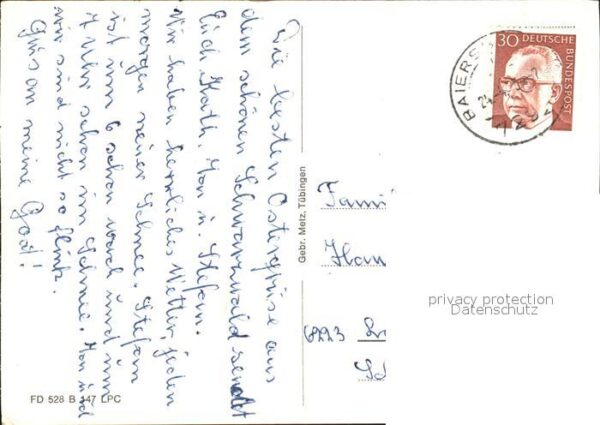 Die besten Ostergrüße aus
dem schönen Schwarzwald sendet
Euch Kath. Man u. Stefan.
Wir haben herrliches Wetter, jeden
morgen neuer Schnee. Stefan
ist um 6 schon wach und um
7 Uhr schon im Schnee. Man und
wir sind nicht so flink.
Gruss an meine God!
FD 528 B 147 LPC
Gebr. Metz, Tübingen
30 DEUTSCHE BUNDESPOST
BAIERS
Fami
Han
6223
privacy protection
Datenschutz